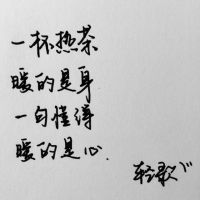 一杯热茶
暖的是身
一句懂得
暖的是心.
轻歌